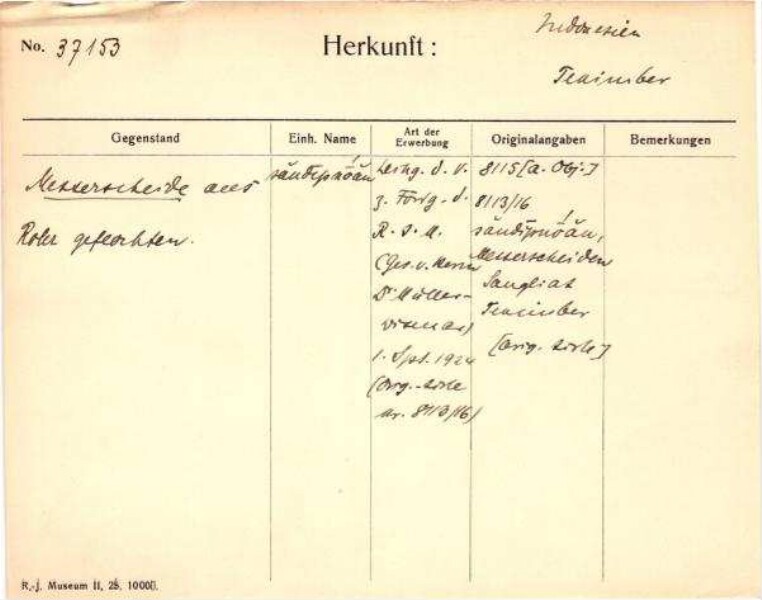 No. 37153
Herkunft:
Indonesien
Tenimber
Gegenstand
Einh. Name
Art der Erwerbung
Originalangaben
Bemerkungen
Messerscheide aus
Rohr geflochten.
Leihg. d. V.
z. Förg. d.
R. J. M.
(Ges. v. Herrn
Dr Müller-
Wismar)
1. Spt. 1924
(Orig.-Liste
nr. 8113/16)
8115 [a. Obj.]
8113/16
Messerscheiden
Sangliat
Tenimber
[Orig. Liste]
R.-J. Museum II, 25. 10000.